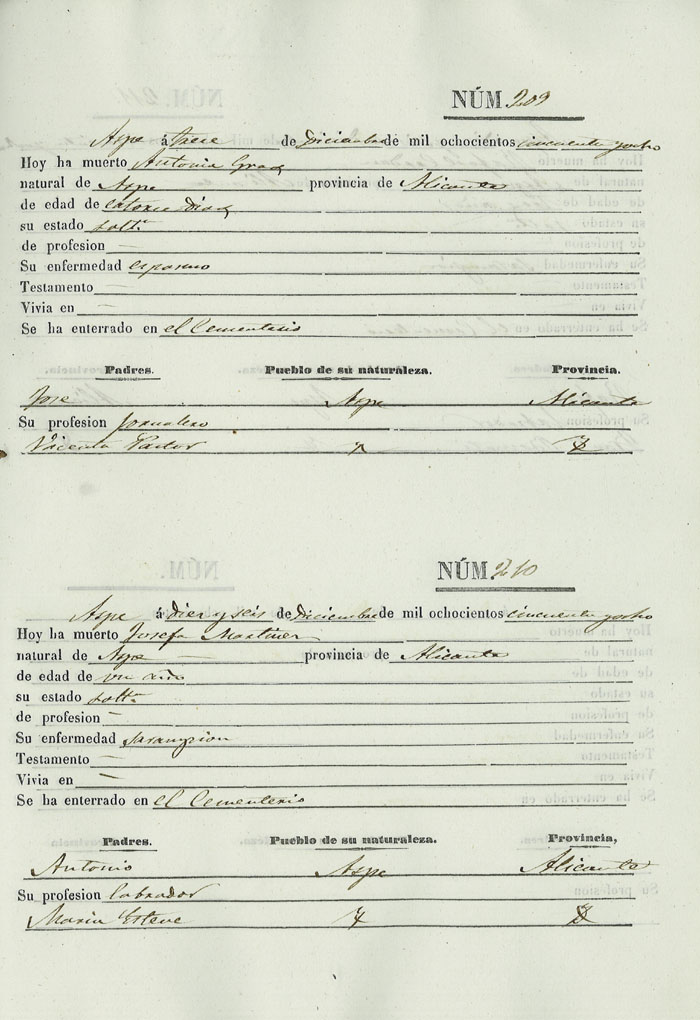 NÚM. 209
Aspe á trece de Diciembre de mil ochocientos cincuenta y ocho
Hoy ha muerto Antonia Gras
natural de Aspe provincia de Alicante
de edad de catorce Dias
su estado solt.ª
de profesion —
Su enfermedad espasmo
Testamento —
Vivia en —
Se ha enterrado en el Cementerio
Padres. Pueblo de su naturaleza. Provincia.
Jose Aspe Alicante
Su profesion Jornalero
Vicenta Pastor
NÚM. 210
Aspe á diez y seis de Diciembre de mil ochocientos cincuenta y ocho
Hoy ha muerto Josefa Martinez
natural de Aspe provincia de Alicante
de edad de un año
su estado solt.ª
de profesion —
Su enfermedad sarampion
Testamento —
Vivia en —
Se ha enterrado en el Cementerio
Padres. Pueblo de su naturaleza. Provincia,
Antonio Aspe Alicante
Su profesion labrador
Maria Esteve